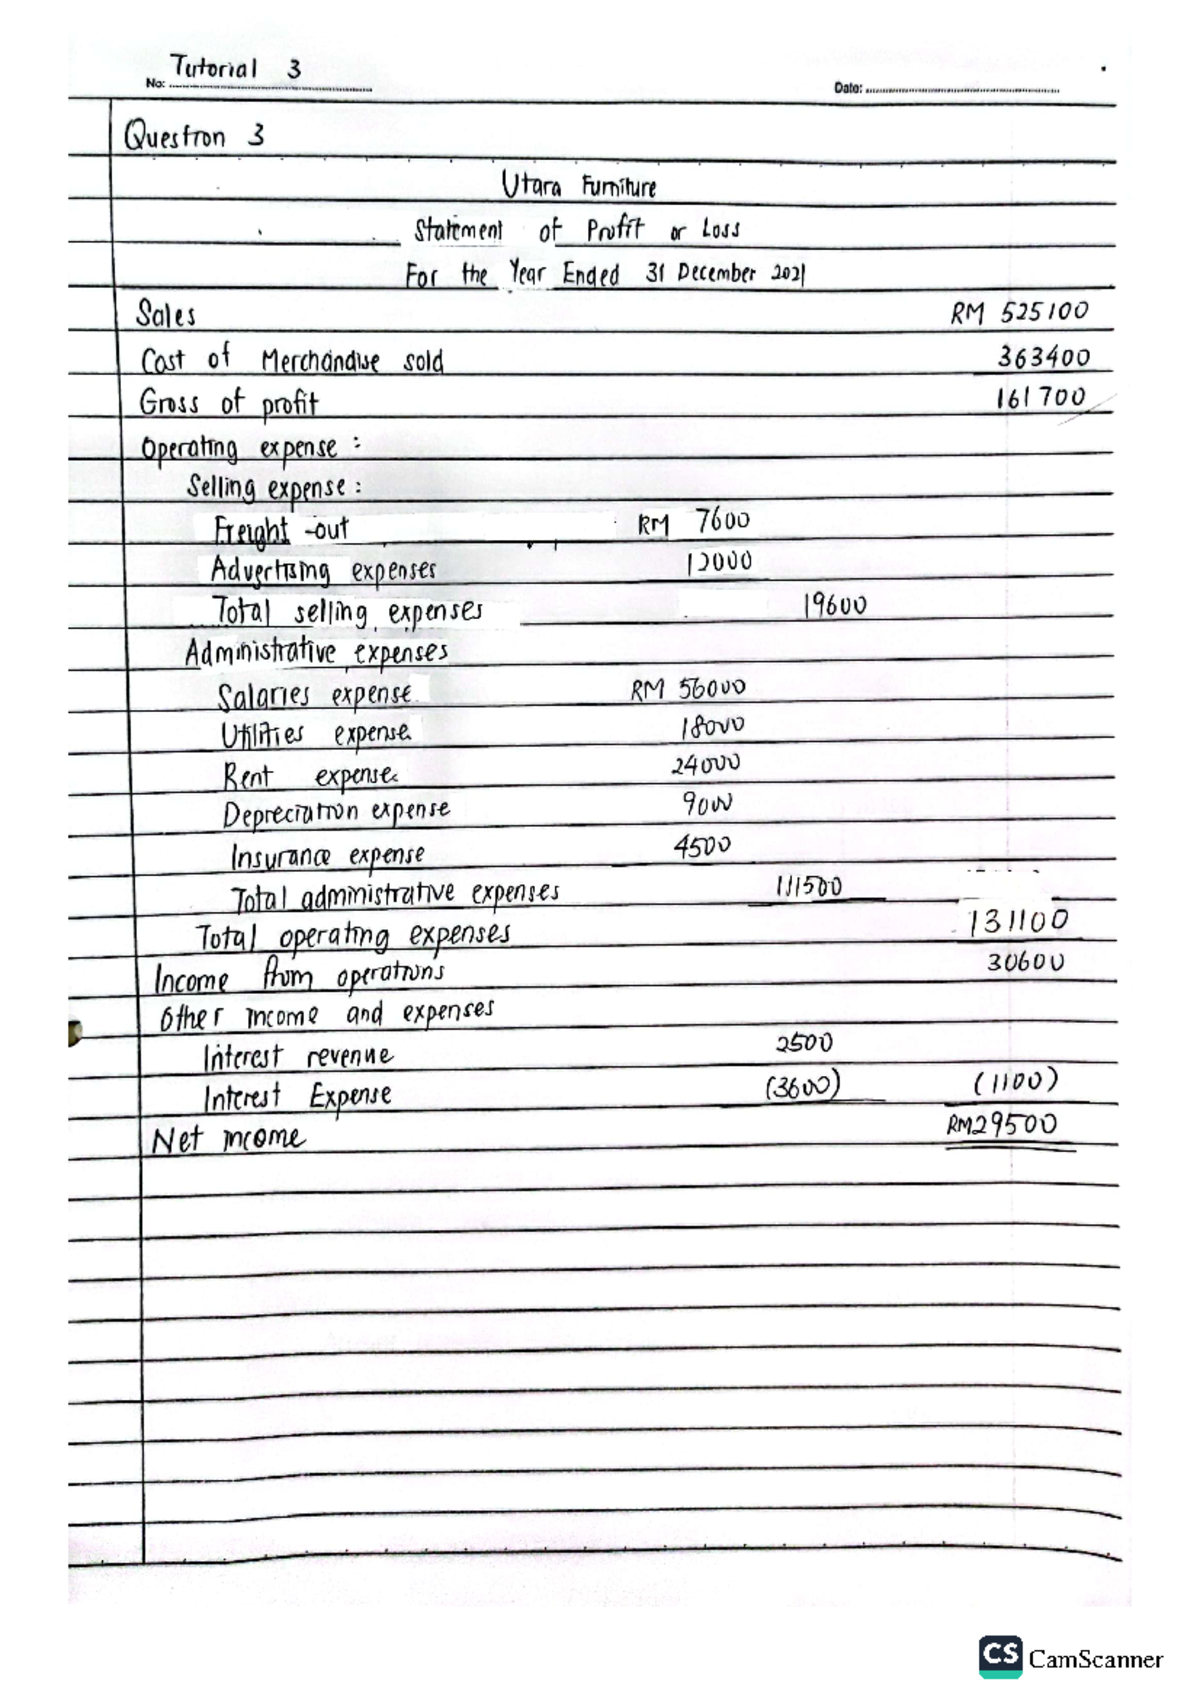 Tutorial 3
No:
Date:
Question 3
Utara Furniture
Statement of Profit or Loss
For the Year Ended 31 December 2021
Sales RM 525100
Cost of Merchandise sold 363400
Gross of profit 161700
Operating expense :
Selling expense :
Freight -out RM 7600
Advertising expenses 12000
Total selling expenses 19600
Administrative expenses
Salaries expense RM 56000
Utilities expense 18000
Rent expense 24000
Depreciation expense 9000
Insurance expense 4500
Total administrative expenses 111500
Total operating expenses 131100
Income from operations 30600
Other income and expenses
Interest revenue 2500
Interest Expense (3600) (1100)
Net income RM29500
CS CamScanner